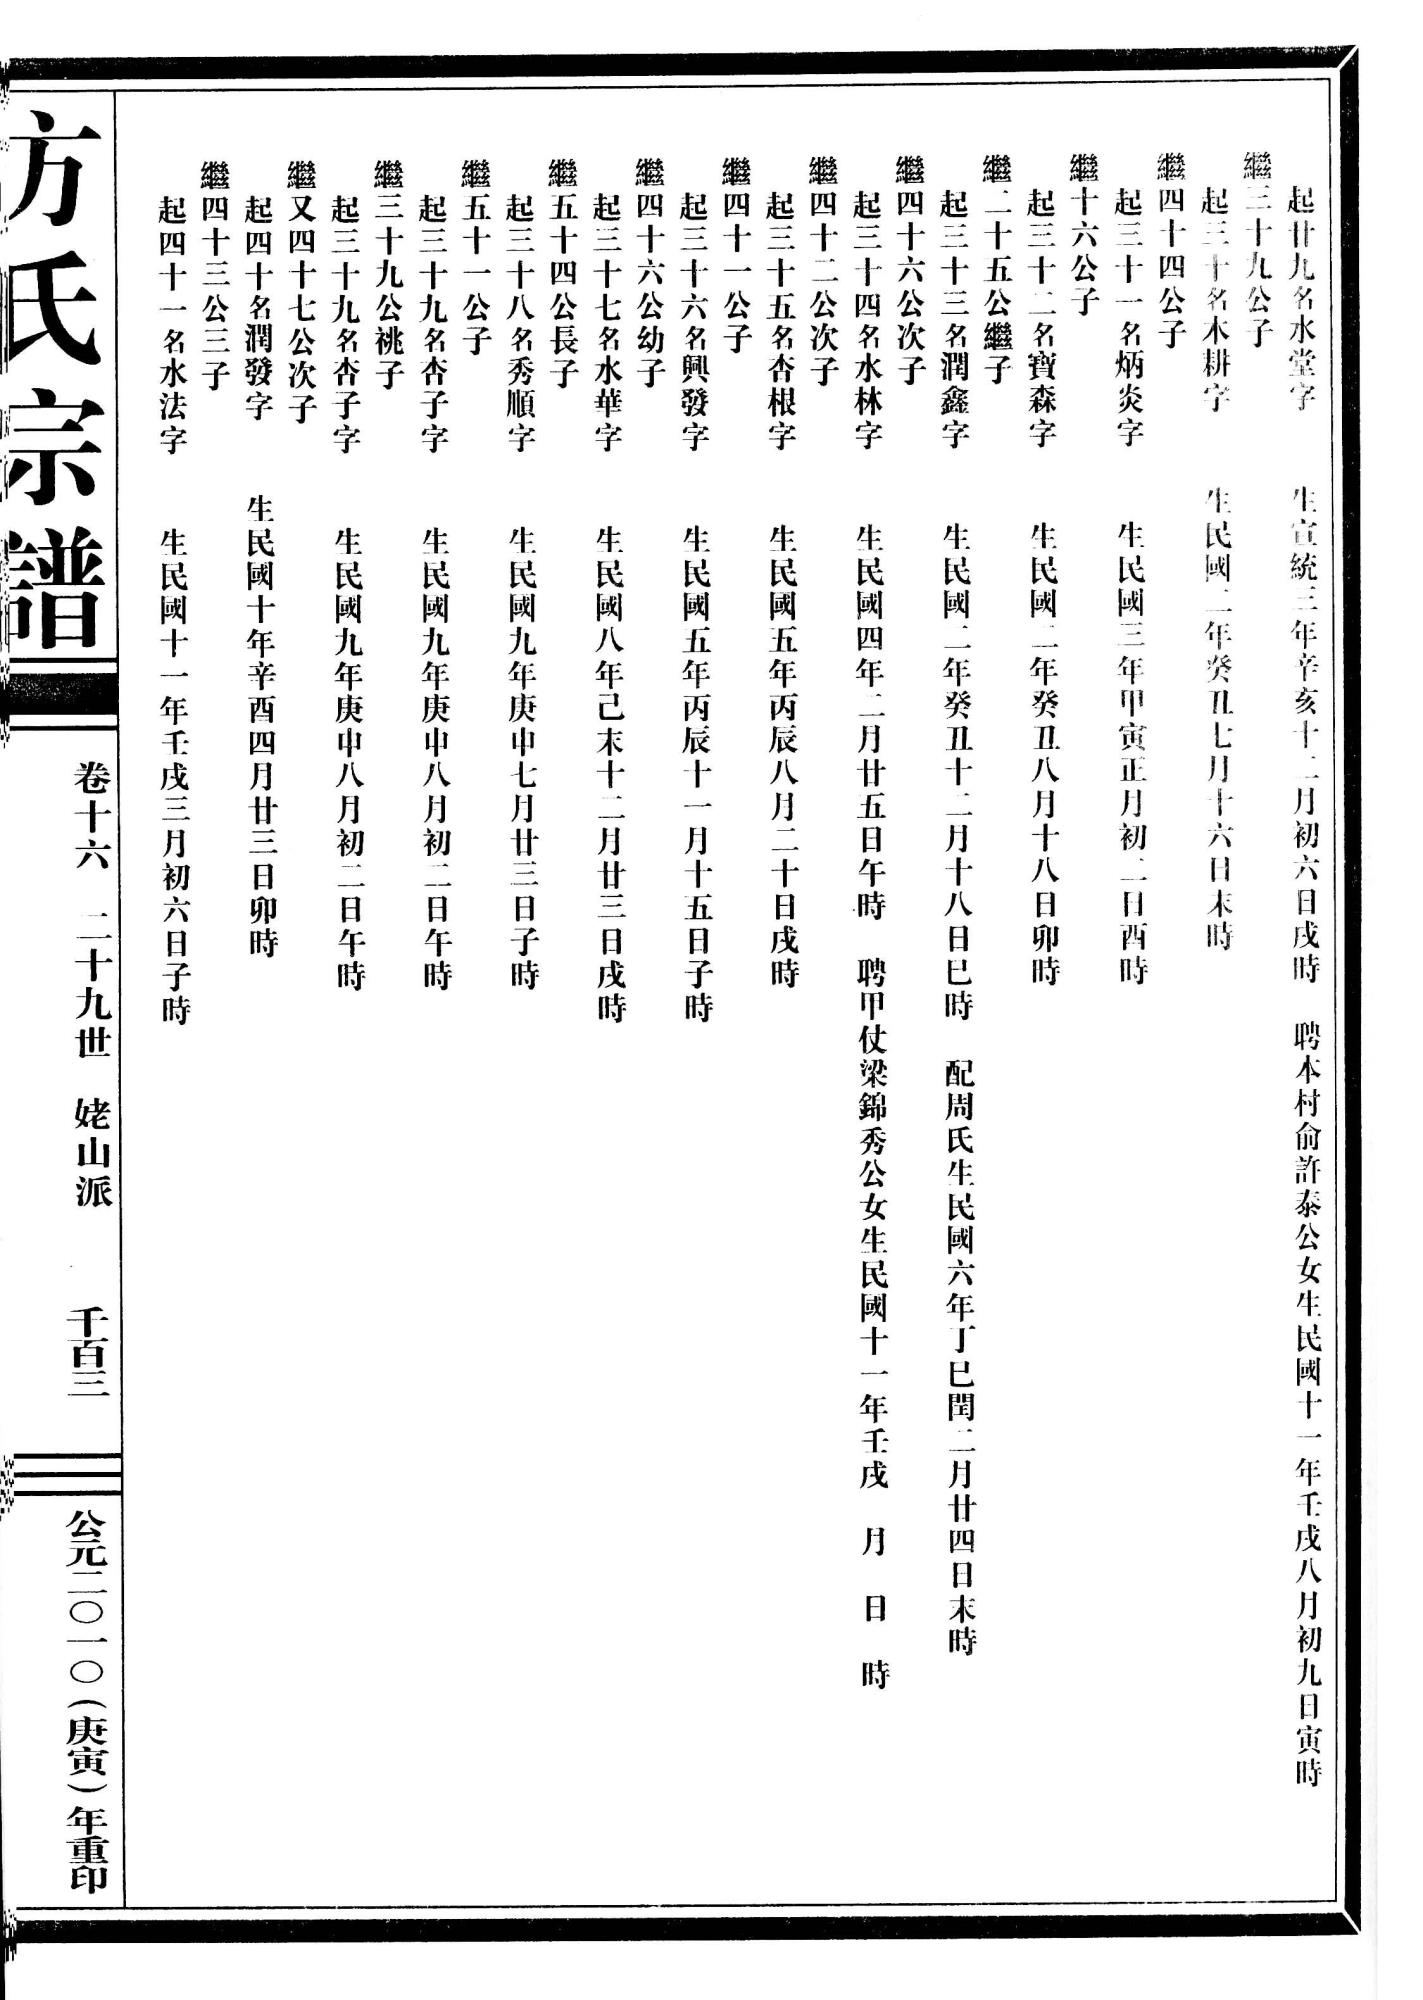 起廿九名水堂字　生宣統三年辛亥十二月初六日戌時　聘本村俞許泰公女生民國十一年壬戌八月初九日寅時
繼三十九公子
起三十名木耕字　生民國二年癸丑七月十六日未時
繼四十四公子
起三十一名炳炎字　生民國三年甲寅正月初二日酉時
繼十六公子
起三十二名寶森字　生民國二年癸丑八月十八日卯時
繼二十五公繼子
起三十三名潤鑫字　生民國二年癸丑十二月十八日巳時　配周氏生民國六年丁巳閏二月廿四日末時
繼四十六公次子
起三十四名水林字　生民國四年二月廿五日午時　聘甲仗梁錦秀公女生民國十一年壬戌　月　日　時
繼四十二公次子
起三十五名杏根字　生民國五年丙辰八月二十日戌時
繼四十一公子
起三十六名興發字　生民國五年丙辰十一月十五日子時
繼四十六公幼子
起三十七名水華字　生民國八年己末十二月廿三日戌時
繼五十四公長子
起三十八名秀順字　生民國九年庚申七月廿三日子時
繼五十一公子
起三十九名杏子字　生民國九年庚申八月初二日午時
繼三十九公祧子
起三十九名杏子字　生民國九年庚申八月初二日午時
繼又四十七公次子
起四十名潤發字　生民國十年辛酉四月廿三日卯時
繼四十三公三子
起四十一名水法字　生民國十一年壬戌三月初六日子時
方氏宗譜
卷十六　二十九世　姥山派
千百三
公元二〇一〇（庚寅）年重印